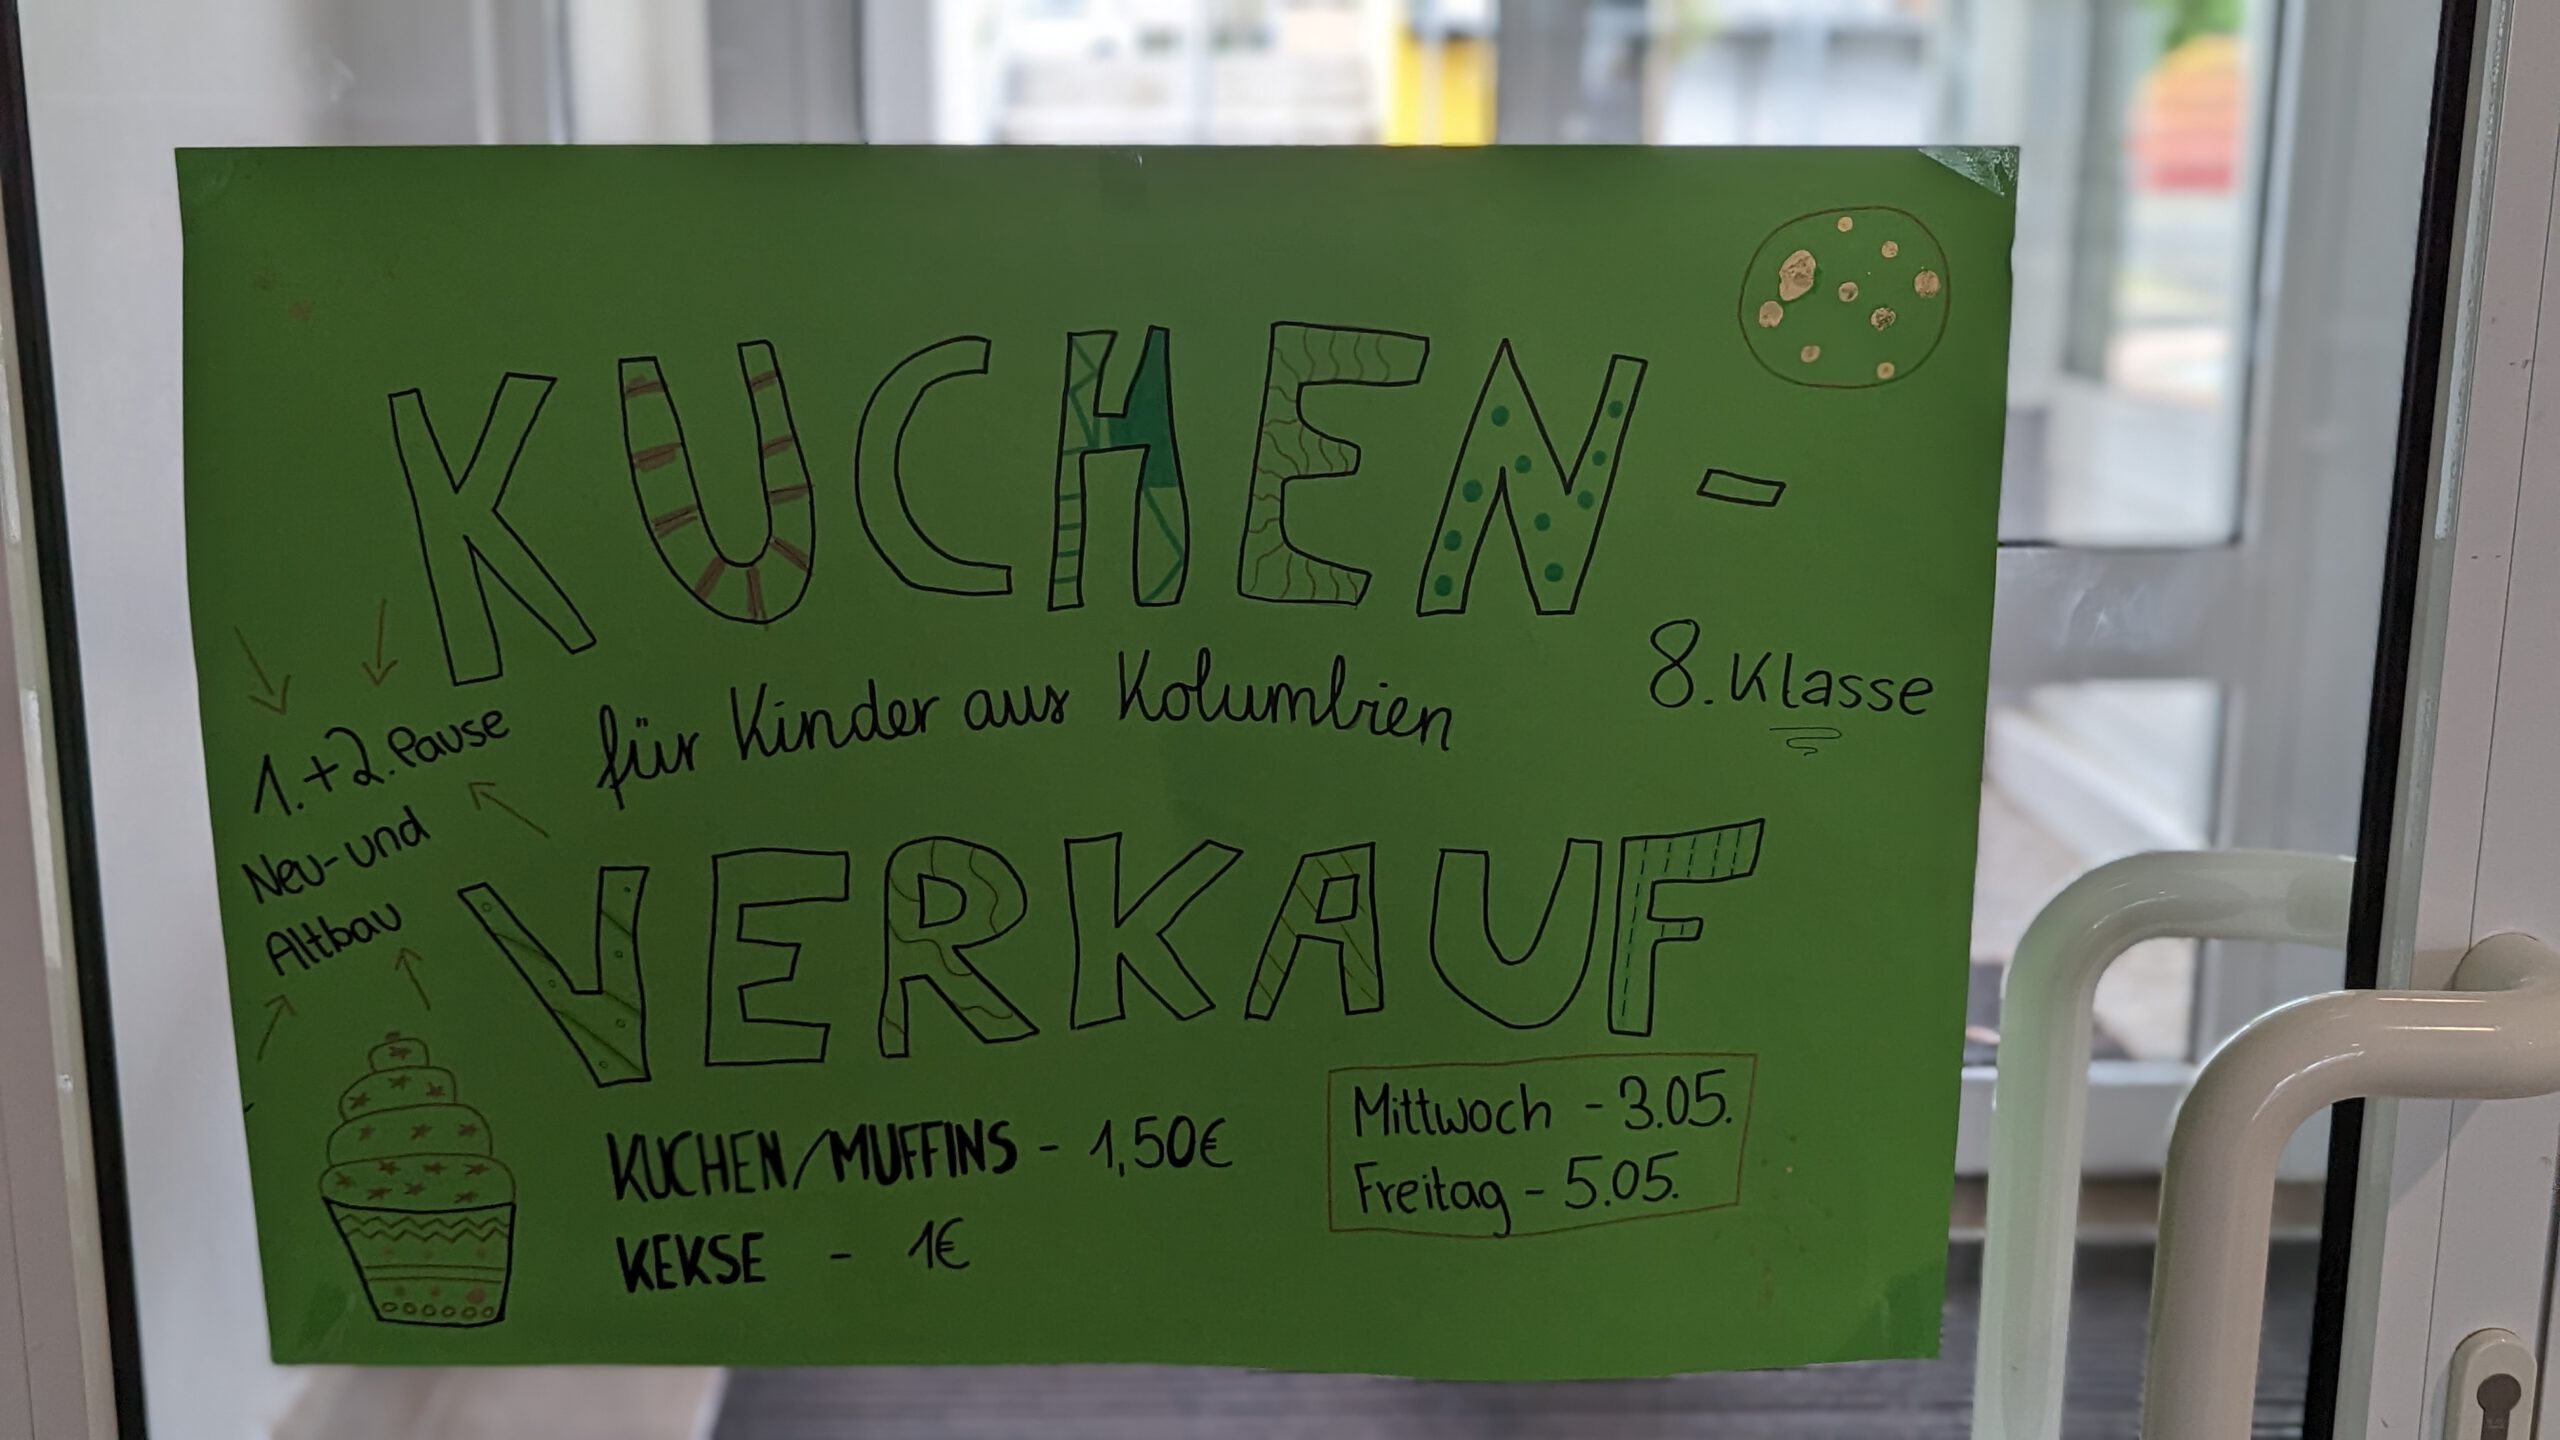 KUCHEN-
für Kinder aus Kolumbien
8. Klasse
1.+2. Pause
Neu- und
Altbau
VERKAUF
KUCHEN/MUFFINS - 1,50€
KEKSE - 1€
Mittwoch - 3.05.
Freitag - 5.05.